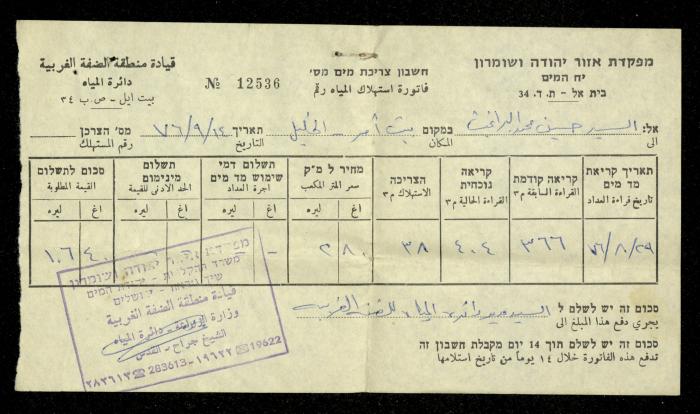 מפקדת אזור יהודה ושומרון
יח המים
בית אל - ת. ד. 34
חשבון צריכת מים מס׳
فاتورة استهلاك المياه رقم
№ 12536
قيادة منطقة الضفة الغربية
دائرة المياه
بيت ايل - ص. ب ٣٤
אל: السيد حسين محمد
الى
במקום بيت أمر - الخليل
المكان
תאריך ٧٦/٩/١٤
التاريخ
מס׳ הצרכן
رقم المستهلك
תאריך קריאת מד מים
تاريخ قراءة العداد
קריאה קודמת
القراءة السابقة م٣
קריאה נוכחית
القراءة الحالية م٣
הצריכה
الاستهلاك م٣
מחיר ל מ"ק
سعر المتر المكعب
תשלום דמי שימוש מד מים
اجرة العداد
תשלום מינימום
الحد الادنى للقيمة
סכום לתשלום
القيمة المطلوبة
אג ليره
אג ليره
אג ليره
אג ليره
٧٦/٨/٢٩ ٣٦٦ ٤٠٤ ٣٨ ٢٨٠ - ١٠٦ ٤٠
סכום זה יש לשלם ל السيد مدير دائرة المياه للضفة الغربية
يجري دفع هذا المبلغ الى
סכום זה יש לשלם תוך 14 יום מקבלת חשבון זה
تدفع هذه الفاتورة خلال ١٤ يوماً من تاريخ استلامها
יהודה ושומרון
משרד החקלאות - יחידת המים
קيادة منطقة الضفة الغربية
وزارة الزراعة - دائرة المياه
الشيخ جراح - القدس
☎ 19622 ☎ 283613 - ١٩٦٢٢ ☎ ٢٨٣٦١٣